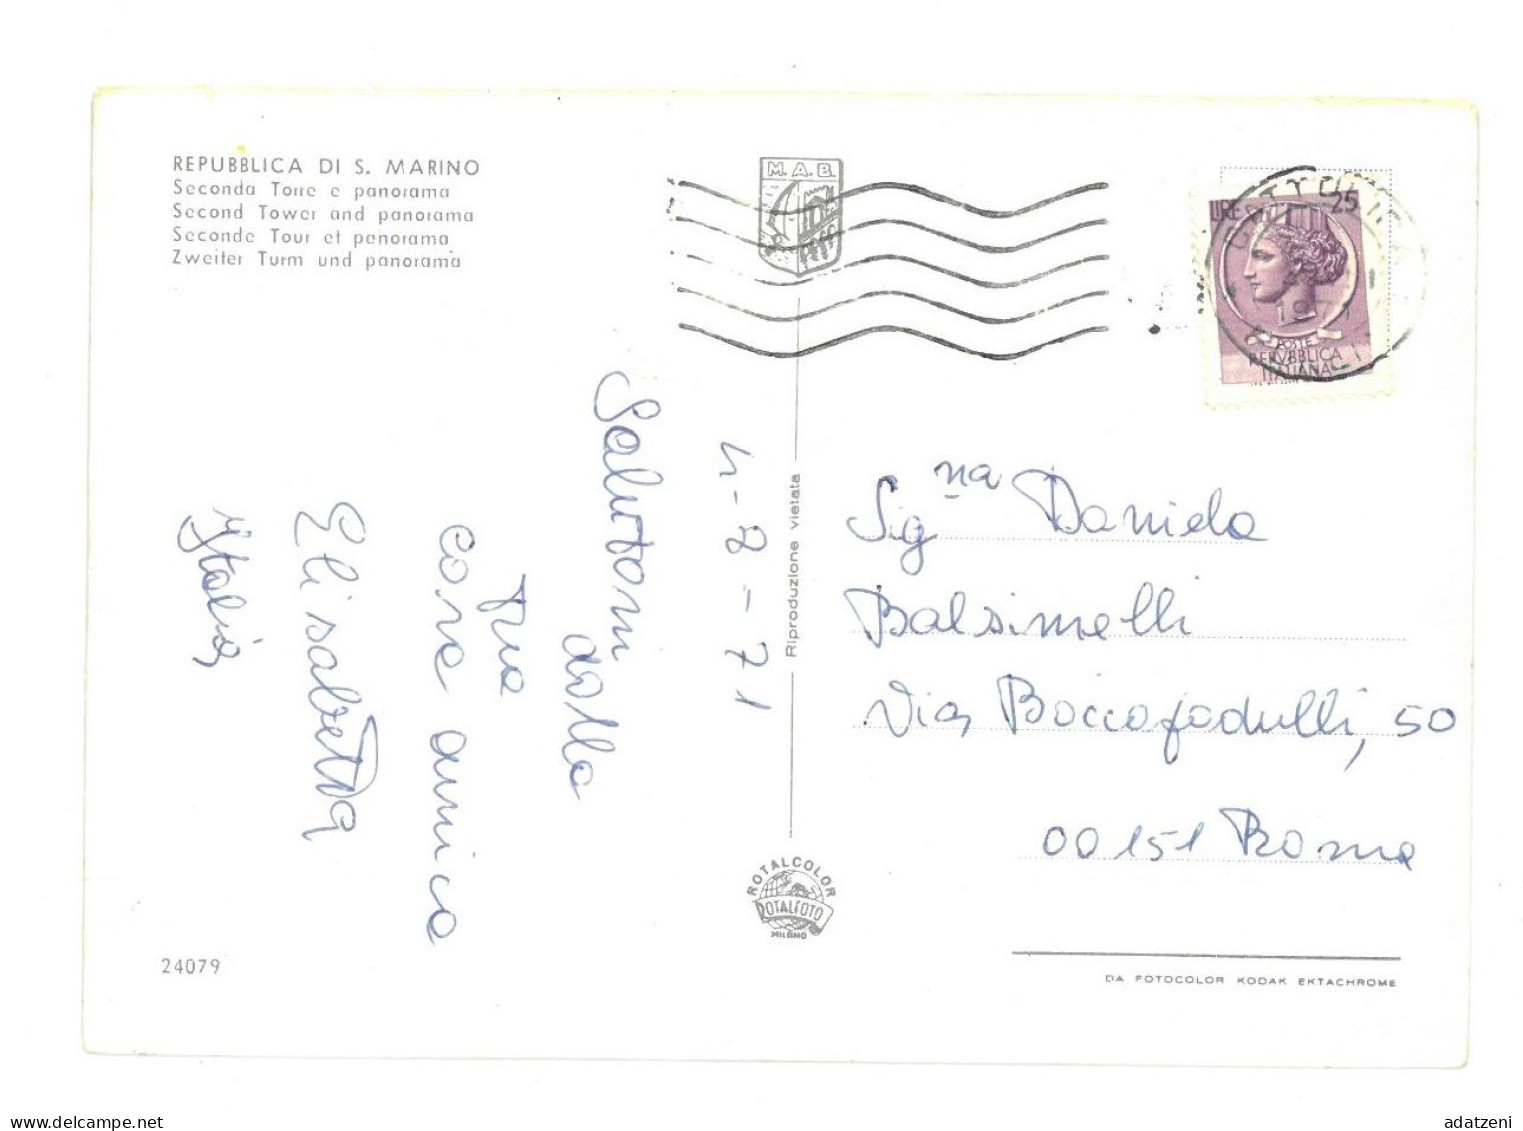 REPUBBLICA DI S. MARINO
Seconda Torre e panorama
Second Tower and panorama
Seconde Tour et panorama
Zweiter Turm und panorama
M.A.B.
LIRE 25
1971
POSTE
REPVBBLICA
ITALIANA
4-2-71
Salutoni
dalla
tua
cara amica
Elisabetta
Riproduzione vietata
Sig.na Daniela
Balsimelli
Via Boccafadulli, 50
00151 Roma
ROTALCOLOR
ROTALFOTO
MILANO
24079
DA FOTOCOLOR KODAK EKTACHROME
www.delcampe.net
adatzeni